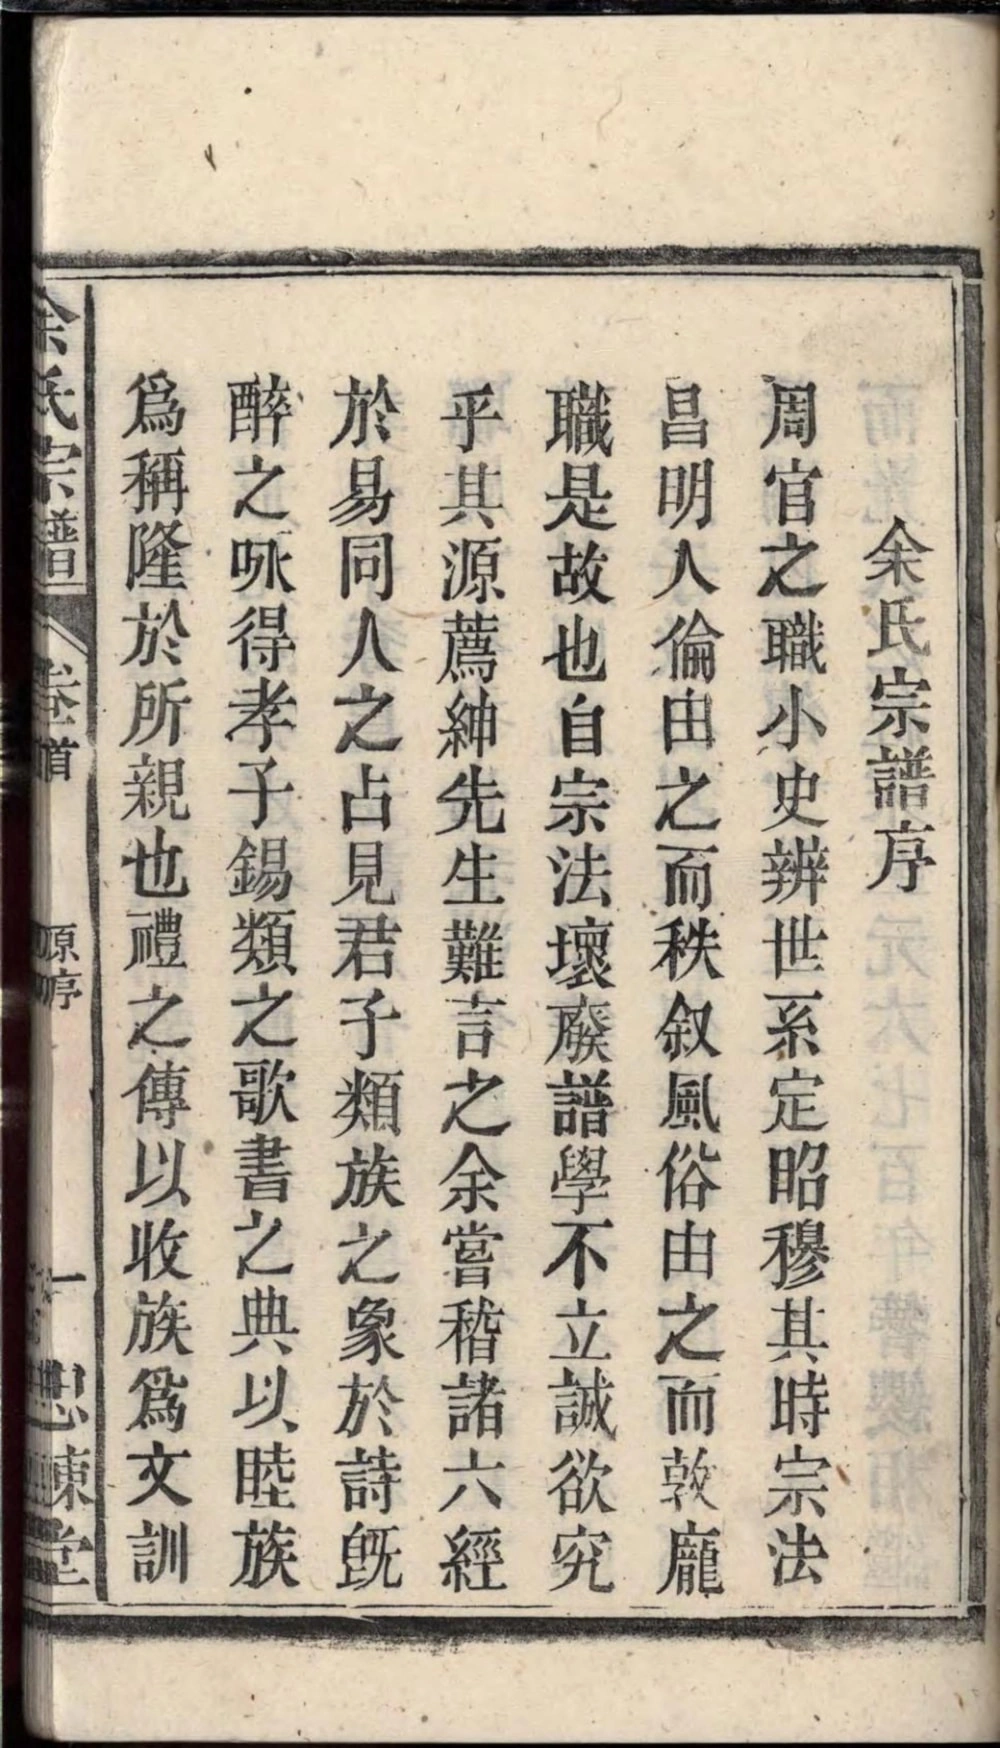 余氏宗譜序
周官之職小史辨世系定昭穆其時宗法
昌明人倫由之而秩叙風俗由之而敦龐
職是故也自宗法壞廢譜學不立誠欲究
乎其源薦紳先生難言之余嘗稽諸六經
於易同人之占見君子類族之象於詩旣
醉之咏得孝子錫類之歌書之典以睦族
爲稱隆於所親也禮之傳以收族爲文訓
余氏宗譜
卷首
原序
一
思陳堂